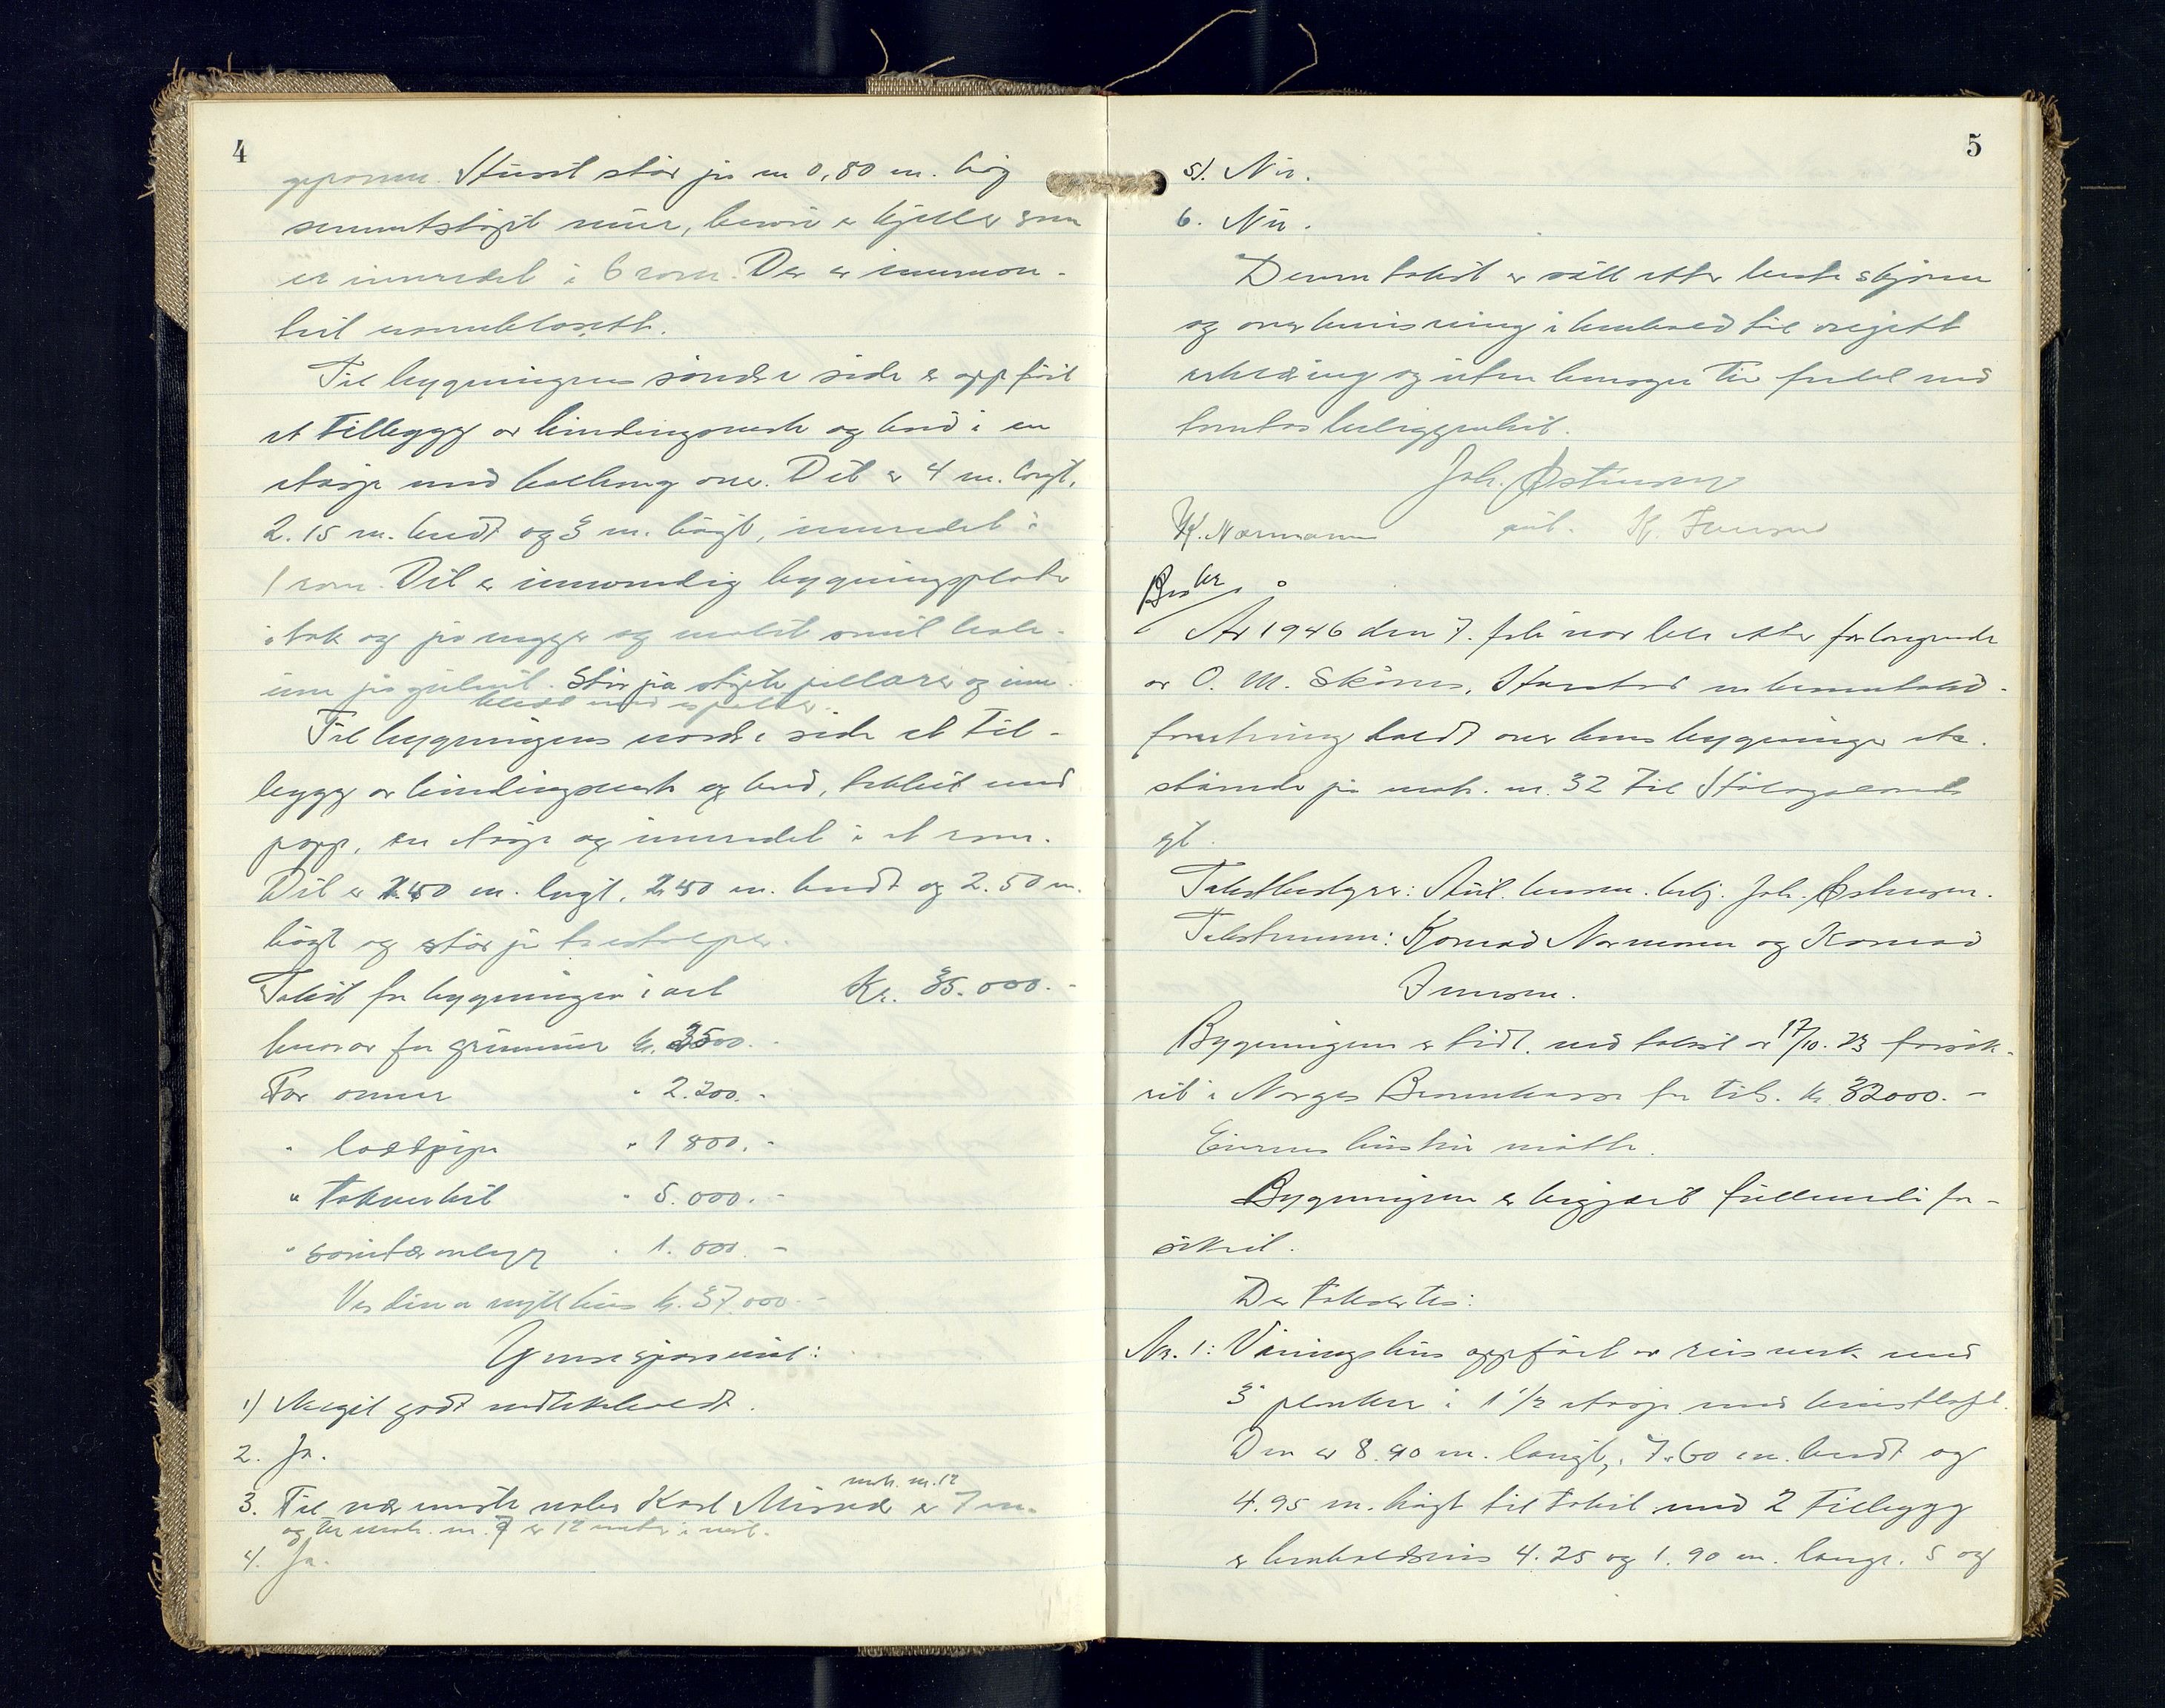 4
Huset står på en 0,80 m. høg
sementstøpt mur, herav er kjeller som
er innredet i 6 rom. Der er innmon-
tert vannklosett.
Til bygningens søndre side er oppført
et tillegg av bindingsverk og bord i en
etasje med balkong over. Det er 4 m. langt,
2.15 m. bredt og 3 m. høgt, innredet i
1 rom. Det er innvendig bygningsplater
i tak og på vegger og malet samt
på gulvet. Står på støpte pillarer og
kledt med
Til bygningens nordre side et til-
legg av bindingsverk og bord, tekket med
papp, en etasje og innredet i et rom.
Det er 2.40 m. langt, 2.40 m. bredt og 2.50 m.
høgt og står på trestolper.
Takst for bygningen i alt Kr. 35.000.-
herav for grunnmur kr. 3500.-
For ovner " 2.200.-
" lodtpipe " 1 800.-
" takverket " 5.000.-
" sanitæranlegg " 1.000.-
Verdien av nytt hus kr. 37.000.-
1) Meget godt vedlikeholdt.
2. Ja.
matr. nr. 12
3. Til nærmeste nabo Karl er 7 m.
og til matr. nr. 7 er 12 meter i vest.
4. Ja.
5
5). Nei.
6. Nei.
Denne takst er satt etter beste skjønn
og overbevisning i henhold til avgitt
erklæring og uten hensyn til fordel ved
tomtas beliggenhet.
Joh. Østensen
K. Normann K. Jensen
År 1946 den 7. febr. var ble etter forlangende
av O. M. Skånes, Harstad en branntakst-
forretning holdt over hans bygninger etc.
stående på matr. nr. 32 til
gt.
Takstbestyrer: Joh. Østensen.
Takstmenn: Konrad Normann og Konrad
Jensen.
Bygningen er tidl. ved takst av 17/10. 23 forsik-
ret i Norges Brannkasse for tils. kr 32000.-
Eierens hustru møtte.
Bygningen er begjært fullverdi for-
sikret.
Der takseres:
Nr. 1: Våningshus oppført av reisverk med
3" planker i 1 1/2 etasje med kvistloft.
Den er 8.90 m. langt, 7.60 m. bredt og
4.95 m. høgt til taket med 2 tillegg
er henholdsvis 4.25 og 1.90 m. lange. 5 og